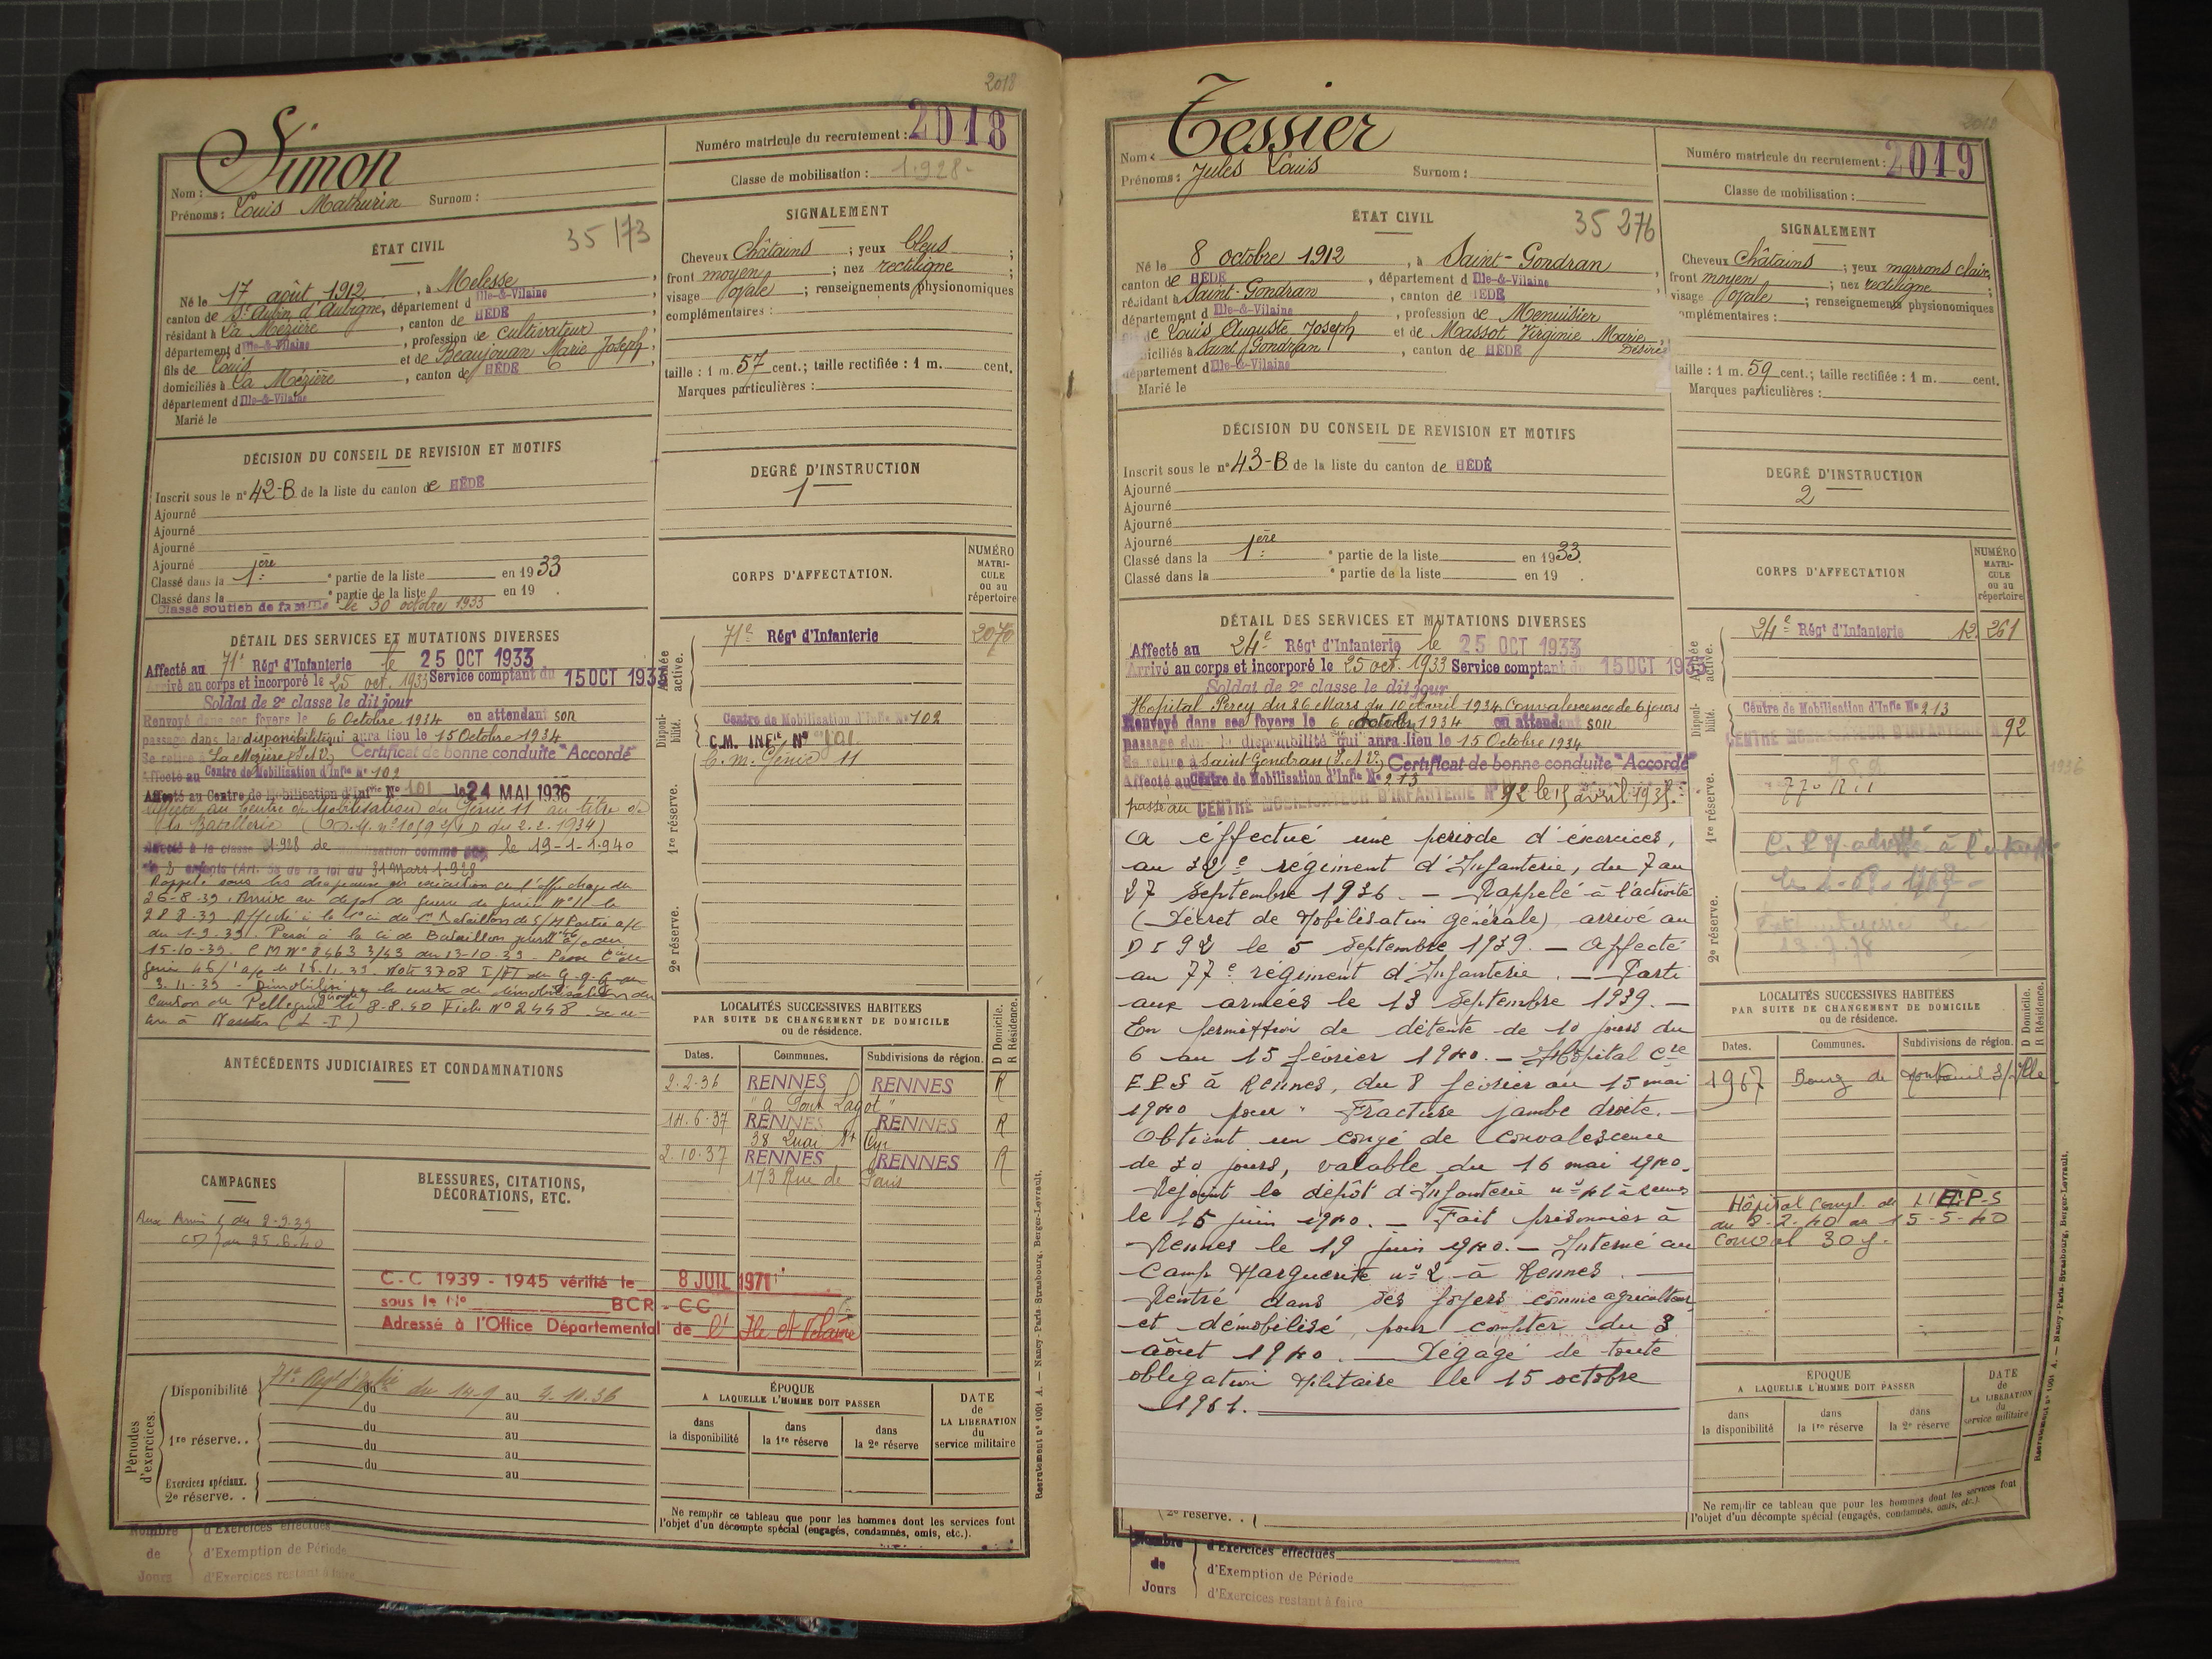 2018
Simon
Nom :
Prénoms : Louis Mathurin Surnom :
Numéro matricule du recrutement : 2018
Classe de mobilisation : 1.928-
ÉTAT CIVIL
35 173
Né le 17 août 1912, à Melesse,
canton de St Aubin d'Aubigné, département d Ille-&-Vilaine,
résidant à La Mézière, canton de HÉDÉ,
département d Ille-&-Vilaine, profession de cultivateur,
fils de Louis et de Beaujouan Marie Joseph,
domiciliés à La Mézière, canton de HÉDÉ,
département d Ille-&-Vilaine
Marié le
SIGNALEMENT
Cheveux Châtains ; yeux bleus ;
front moyen ; nez rectiligne ;
visage ovale ; renseignements physionomiques
complémentaires :
taille : 1 m. 57 cent. ; taille rectifiée : 1 m. cent.
Marques particulières :
DÉCISION DU CONSEIL DE REVISION ET MOTIFS
Inscrit sous le n° 42-B de la liste du canton de HÉDÉ
Ajourné
Ajourné
Ajourné
Ajourné
Classé dans la 1ère partie de la liste en 1933
Classé dans la partie de la liste en 19 .
Classé soutien de famille le 30 octobre 1933
DEGRÉ D'INSTRUCTION
1
CORPS D'AFFECTATION.
NUMÉRO MATRI-CULE ou au répertoire
DÉTAIL DES SERVICES ET MUTATIONS DIVERSES
Affecté au 71e Régt d'Infanterie le 25 OCT 1933
Arrivé au corps et incorporé le 25 oct. 1933 Service comptant du 15 OCT 1933
Soldat de 2e classe le dit jour
Renvoyé dans ses foyers le 6 Octobre 1934 en attendant son
passage dans la disponibilité qui aura lieu le 15 Octobre 1934
Se retire à La Mézière (I.&V.) Certificat de bonne conduite "Accordé"
Affecté au Centre de Mobilisation d'Infie N° 102
Affecté au Centre de Mobilisation d'Infie N° 101 le 24 MAI 1936
Affecté au Centre de Mobilisation du Génie 11 au titre de
la Batellerie
Affecté à la classe 1928 de mobilisation comme le 19-1-1940
de 2 enfants (Art. 58 de la loi du 31 Mars 1928
Rappelé sous les drapeaux
26-8-39. Arrivé au dépôt de guerre du génie N° 11 le
28 8-39
du 1-9-39.
15-10-39
3-11-39
canton de Pellegrue (Gironde) le 8-8-40 Fiche N° 2448 Se re-
tire à Nantes (L-I)
Armée active.
71e Régt d'Infanterie 2070
Disponi-bilité.
Centre de Mobilisation d'Infie N° 102
C.M. INFie N° 101
C. m. Génie 11
1re réserve.
2e réserve.
ANTÉCÉDENTS JUDICIAIRES ET CONDAMNATIONS
LOCALITÉS SUCCESSIVES HABITÉES
PAR SUITE DE CHANGEMENT DE DOMICILE
ou de résidence.
D Domicile.
R Résidence.
Dates. Communes. Subdivisions de région.
2-2-36 RENNES RENNES R
"a Pont Lagot"
14-6-37 RENNES RENNES R
38 Quai St Cyr
2-10-37 RENNES RENNES R
173 Rue de Paris
CAMPAGNES
BLESSURES, CITATIONS,
DÉCORATIONS, ETC.
Aux Armées du 2-9-39
CD au 25.6.40
C-C 1939 - 1945 vérifié le 8 JUIL 1971
sous le N° BCR - CC
Adressé à l'Office Départemental de l'Ile et Vilaine
Périodes d'exercices.
Disponibilité 71e Regt d'Infie du 14-9 au 4-10-36
du au
1re réserve. . du au
du au
du au
Exercices spéciaux.
2e réserve. . du au
ÉPOQUE
A LAQUELLE L'HOMME DOIT PASSER
dans la disponibilité
dans la 1re réserve
dans la 2e réserve
DATE de LA LIBÉRATION du service militaire
Ne remplir ce tableau que pour les hommes dont les services font
l'objet d'un décompte spécial (engagés, condamnés, omis, etc.).
Nombre de Jours
d'Exercices effectués
d'Exemption de Période
d'Exercices restant à faire
Recrutement n° 1001 A. — Nancy-Paris-Strasbourg, Berger-Levrault.
Tessier
Nom :
Prénoms : Jules Louis Surnom :
Numéro matricule du recrutement : 2019
Classe de mobilisation :
ÉTAT CIVIL
35 276
Né le 8 octobre 1912, à Saint-Gondran,
canton de HÉDÉ, département d Ille-&-Vilaine
résidant à Saint-Gondran, canton de HÉDÉ
département d Ille-&-Vilaine, profession de Menuisier
fils de Louis Auguste Joseph et de Massot Virginie Marie Désirée,
domiciliés à Saint Gondran, canton de HÉDÉ
département d Ille-&-Vilaine
Marié le
SIGNALEMENT
Cheveux Châtains ; yeux marrons clairs
front moyen ; nez rectiligne ;
visage ovale ; renseignements physionomiques
complémentaires :
taille : 1 m. 59 cent. ; taille rectifiée : 1 m. cent.
Marques particulières :
DÉCISION DU CONSEIL DE REVISION ET MOTIFS
Inscrit sous le n° 43-B de la liste du canton de HÉDÉ
Ajourné
Ajourné
Ajourné
Ajourné
Classé dans la 1ère partie de la liste en 1933.
Classé dans la partie de la liste en 19 .
DEGRÉ D'INSTRUCTION
2
CORPS D'AFFECTATION
NUMÉRO MATRI-CULE ou au répertoire
DÉTAIL DES SERVICES ET MUTATIONS DIVERSES
Affecté au 24e Régt d'Infanterie le 25 OCT 1933
Arrivé au corps et incorporé le 25 oct. 1933 Service comptant du 15 OCT 1933
Soldat de 2e classe le dit jour
Hopital Percy du 26 Mars du 10 Avril 1934 Convalescence de 6 jours
Renvoyé dans ses foyers le 6 octobre 1934 en attendant son
passage dans la disponibilité qui aura lieu le 15 Octobre 1934
Se retire à Saint Gondran (I.&V.) Certificat de bonne conduite "Accordé"
Affecté au Centre de Mobilisation d'Infie N° 213
passé au CENTRE MOBILISATEUR D'INFANTERIE N° 92 le 15 avril 1935.
a éffectué une période d'éxercices,
au 32e régiment d'Infanterie, du 7 au
27 Septembre 1936. — Rappelé à l'activité
(Décret de Mobilisation générale) arrivé au
D I 92 le 5 Septembre 1939. — Affecté
au 77e régiment d'Infanterie. — Parti
aux armées le 13 Septembre 1939. —
En permission de détente de 10 jours du
6 au 15 février 1940. — Hôpital Cre
E P S à Rennes, du 8 février au 15 mai
1940 pour " Fracture jambe droite. —
Obtient un congé de convalescence
de 30 jours, valable du 16 mai 1940.
Rejoint le dépôt d'Infanterie n° 41 à Rennes
le 15 juin 1940. — Fait prisonnier à
Rennes le 19 juin 1940. — Interné au
Camp Marguerite n° 2 à Rennes. —
Rentré dans ses foyers comme agriculteur
et démobilisé, pour compter du 3
août 1940. — Dégagé de toute
obligation Militaire le 15 octobre
1961.
Armée active.
24e Régt d'Infanterie 12.261
Disponi-bilité.
Centre de Mobilisation d'Infie N° 213
CENTRE MOBILISATEUR D'INFANTERIE N° 92
1re réserve.
77e R.I
2e réserve.
18-7-78
LOCALITÉS SUCCESSIVES HABITÉES
PAR SUITE DE CHANGEMENT DE DOMICILE
ou de résidence.
D Domicile.
R Résidence.
Dates. Communes. Subdivisions de région.
1967 Bourg de Montreuil s/ Ille
Hôpital Compl. de l'E.P.S
du 8-2-40 au 15-5-40
Conval 30 j.
ÉPOQUE
A LAQUELLE L'HOMME DOIT PASSER
dans la disponibilité
dans la 1re réserve
dans la 2e réserve
DATE de LA LIBÉRATION du service militaire
2e réserve. .
Ne remplir ce tableau que pour les hommes dont les services font
l'objet d'un décompte spécial (engagés, condamnés, omis, etc.).
Nombre de Jours
d'Exercices effectués
d'Exemption de Période
d'Exercices restant à faire
Recrutement n° 1001 A. — Nancy-Paris-Strasbourg, Berger-Levrault.